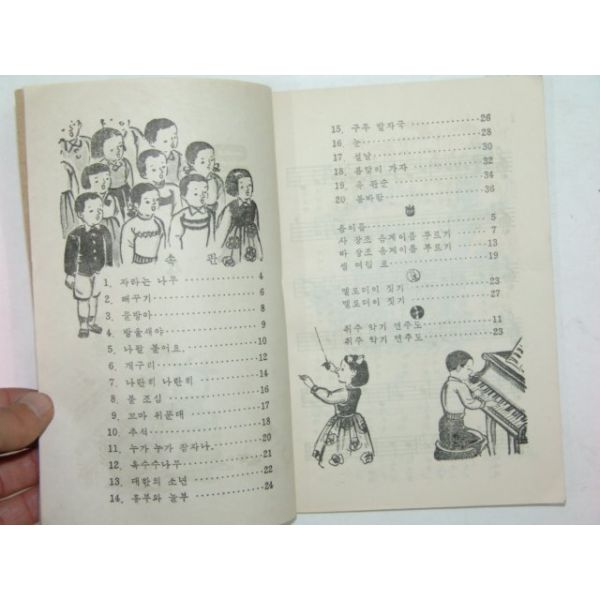 속 판
1. 자라는 나무 4
2. 뻐꾸기 6
3. 물방아 8
4. 방울새야 9
5. 나팔 불어요. 10
6. 개구리 12
7. 나란히 나란히 14
8. 불 조심 16
9. 꼬마 위문대 17
10. 추석 18
11. 누가 누가 잠자나. 20
12. 옥수수나무 21
13. 대한의 소년 22
14. 흥부와 놀부 24
15. 구두 발자국 26
16. 눈 28
17. 설날 30
18. 봄맞이 가자 32
19. 유 관순 34
20. 봄바람 36
음이름 5
사 장조 음계이름 부르기 7
바 장조 음계이름 부르기 13
셈 여림 표 19
멜로디이 짓기 23
멜로디이 짓기 27
취주 악기 연주도 11
취주 악기 연주도 23